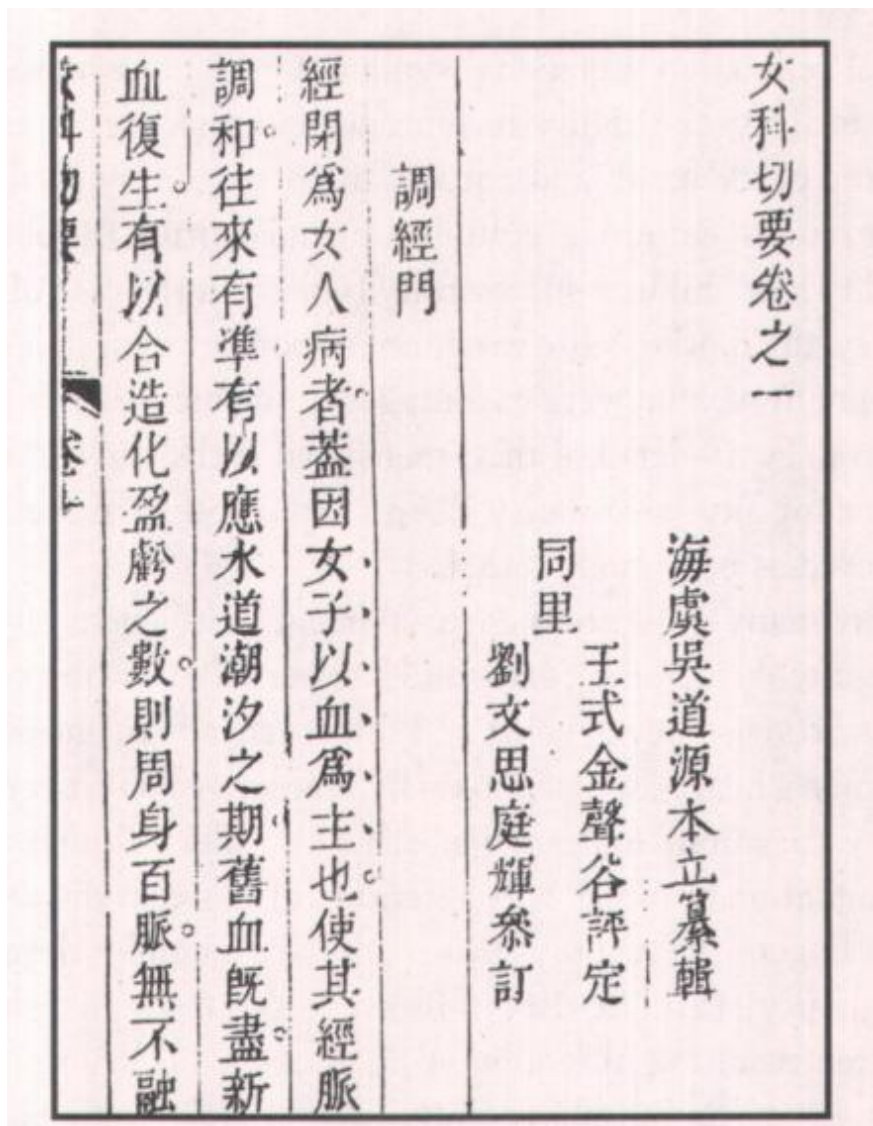 女科切要卷之一
海虞吳道源本立纂輯
同里
王式金聲谷評定
劉文思庭輝叅訂
調經門
經閉爲女人病者葢因女子以血爲主也使其經脈
調和往來有準有以應水道潮汐之期舊血旣盡新
血復生有以合造化盈虧之數則周身百脈無不融
女科切要
卷一